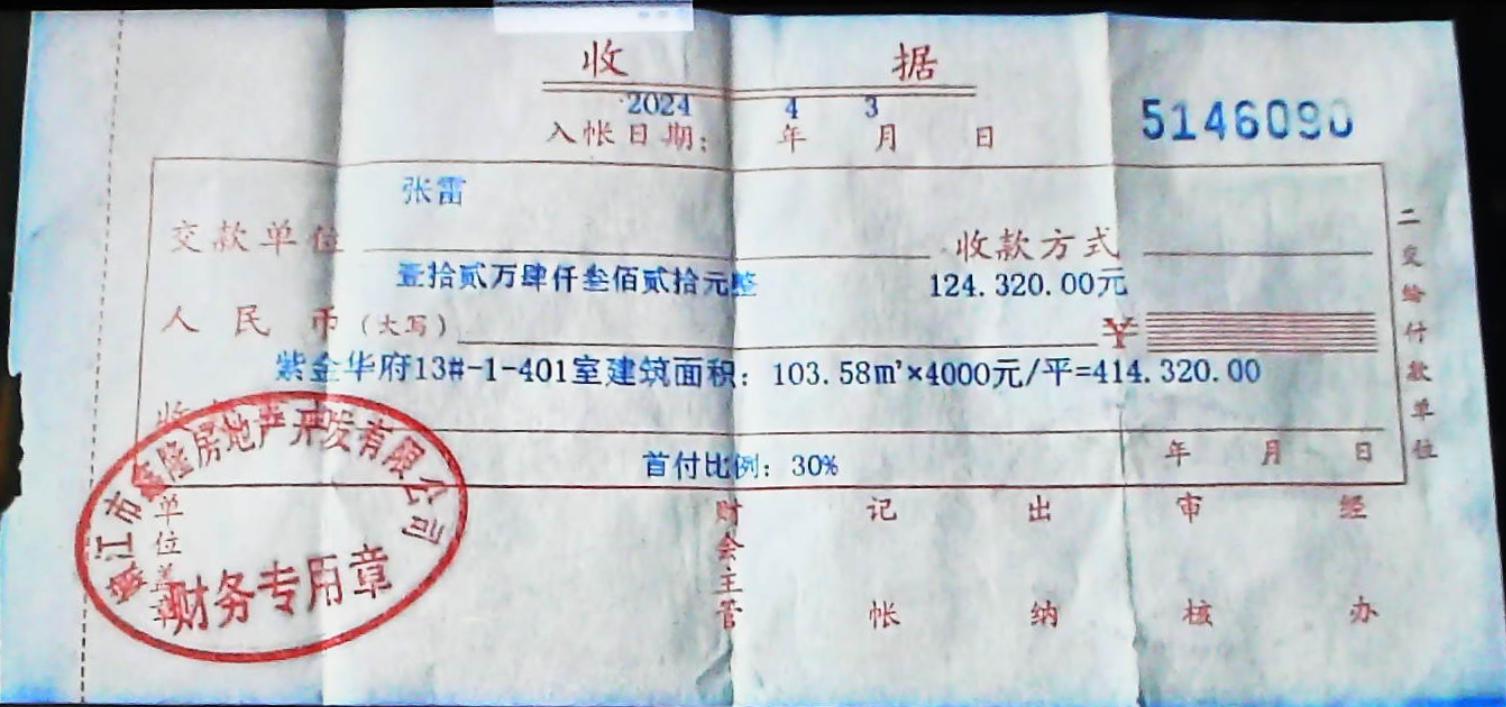 收 据
2024 4 3
入帐日期： 年 月 日
5146090
张雷
交款单位 收款方式
壹拾贰万肆仟叁佰贰拾元整 124.320.00元
人民币（大写） ¥
紫金华府13#-1-401室建筑面积：103.58m²×4000元/平=414.320.00
收
年 月 日
首付比例：30%
二交给付款单位
单位盖章
财会主管 记帐 出纳 审核 经办
江市鑫隆房地产开发有限公司
财务专用章